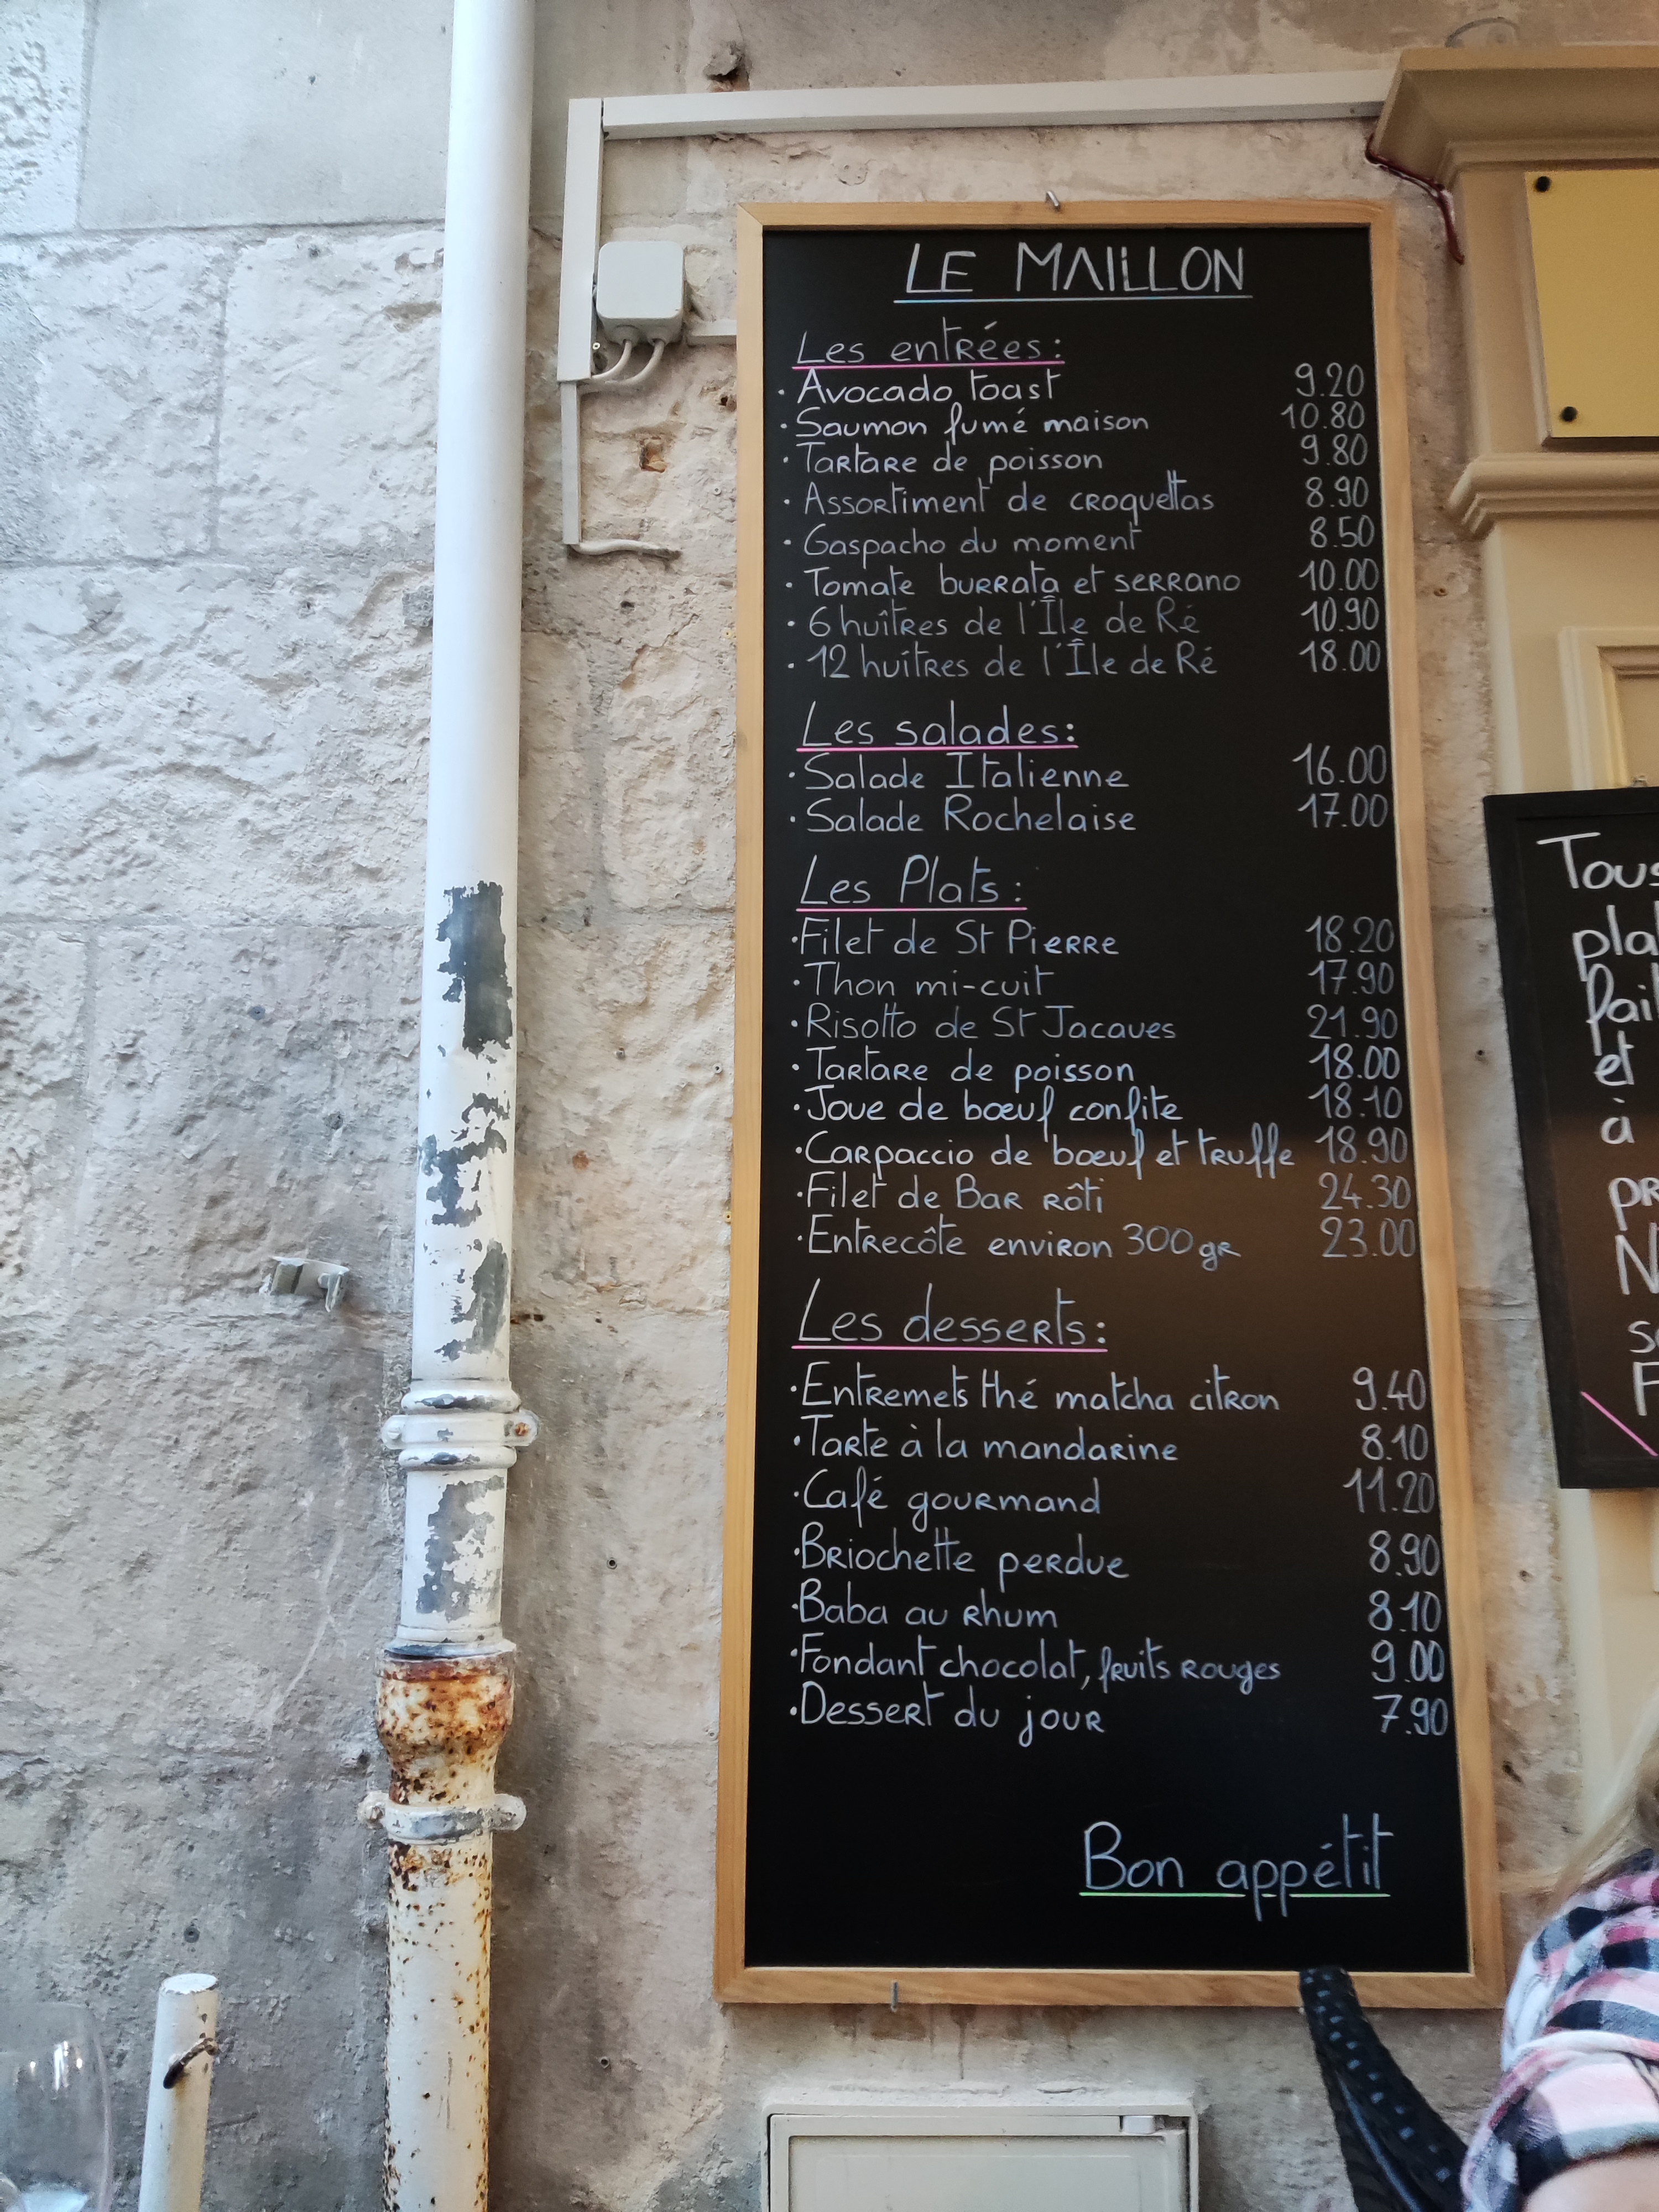 LE MAILLON
Les entrées:
· Avocado toast 9.20
· Saumon fumé maison 10.80
· Tartare de poisson 9.80
· Assortiment de croquettas 8.90
· Gaspacho du moment 8.50
· Tomate burrata et serrano 10.00
· 6 huîtres de l'Île de Ré 10.90
· 12 huîtres de l'Île de Ré 18.00
Les salades:
· Salade Italienne 16.00
· Salade Rochelaise 17.00
Les Plats:
· Filet de St Pierre 18.20
· Thon mi-cuit 17.90
· Risotto de St Jacques 21.90
· Tartare de poisson 18.00
· Joue de bœuf confite 18.10
· Carpaccio de bœuf et truffe 18.90
· Filet de Bar rôti 24.30
· Entrecôte environ 300 gr 23.00
Les desserts:
· Entremets thé matcha citron 9.40
· Tarte à la mandarine 8.10
· Café gourmand 11.20
· Briochette perdue 8.90
· Baba au rhum 8.10
· Fondant chocolat, fruits rouges 9.00
· Dessert du jour 7.90
Bon appétit
Tous
et
à